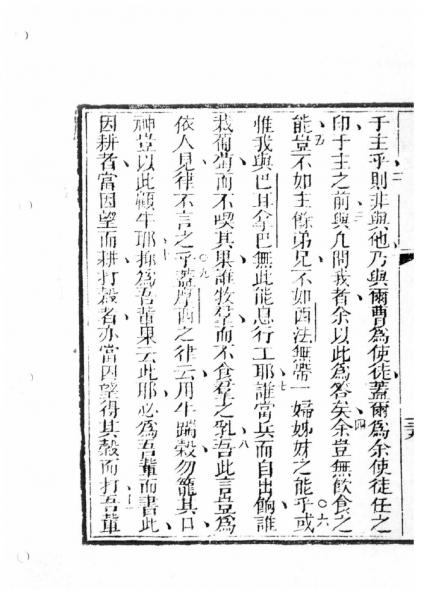 于主乎則非與他乃與爾曹爲使徒蓋爾爲余使徒任之
印于主之前與凡問我者余以此爲答矣余豈無飲食之
能豈不如主餘弟兄不如西法無帶一婦姊妹之能乎或
惟我與巴耳拿巴無此能息行工耶誰當兵而自出餉誰
栽葡萄而不喫其果誰牧羣而不食羣之乳吾此言豈爲
依人見律不言之乎蓋摩西之律云用牛踹穀勿籠其口
神豈以此顧牛耶抑爲吾輩果云此耶必爲吾輩而書此
因耕者當因望而耕打穀者亦當因望得其穀而打吾輩